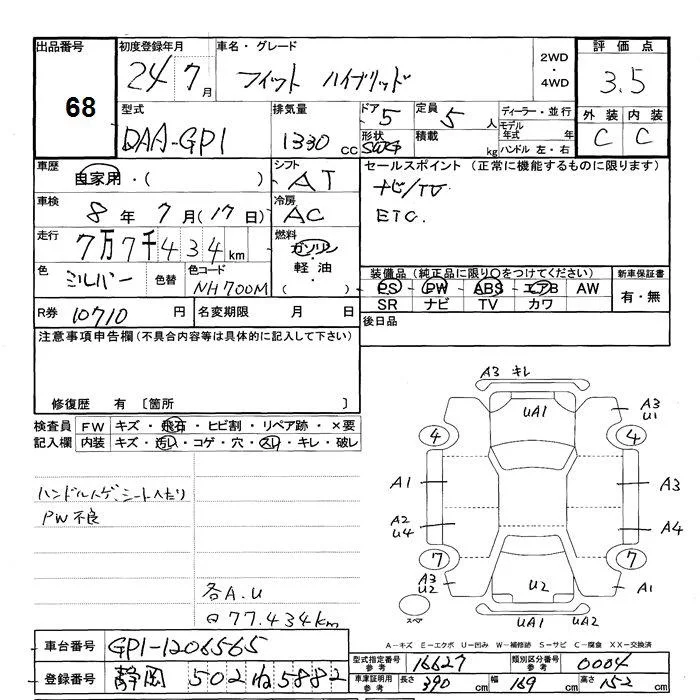 出品番号 68
初度登録年月 24年7月
車名・グレード フィット ハイブリッド
2WD・4WD
評価点 3.5
外装 内装
C C
型式 DAA-GP1
排気量 1330 CC
ドア 5
形状 5HB
定員 5 人
積載 kg
ディーラー・並行
モデル年式 年
ハンドル 左・右
車歴 自家用・( )
シフト AT
セールスポイント(正常に機能するものに限ります)
ナビ/TV
ETC.
車検 8年7月(17日)
冷房 AC
走行 7万7千434km
燃料 ガソリン・軽油・( )
色 シルバー 色替
色コード NH700M
装備品(純正品に限り○をつけてください)
PS PW ABS エアB AW
SR ナビ TV カワ
新車保証書
有・無
R券 10710 円
名変期限 月 日
後日品
注意事項申告欄(不具合内容等は具体的に記入して下さい)
修復歴 有 〔箇所 〕
検査員 FW キズ・飛石・ヒビ割・リペア跡・×要
記入欄 内装 キズ・汚れ・コゲ・穴・スレ・キレ・破レ
ハンドルハゲ、シートヘたり
PW不良
各A.U
Q 77.434km
A3 キレ
UA1
A3 U1
4 4
A1 A3
A2 U4
A4
7 7
A3 U2
U2
A1
スペア
UA1 UA2
A-キズ E-エクボ U-凹み W-補修跡 S-サビ C-腐食 XX-交換済
車台番号 GP1-1206565
登録番号 静岡 502 ね 5882
型式指定番号参考 16627
類別区分番号参考 0004
車庫証明用参考 長さ 390 cm 幅 169 cm 高さ 152 cm